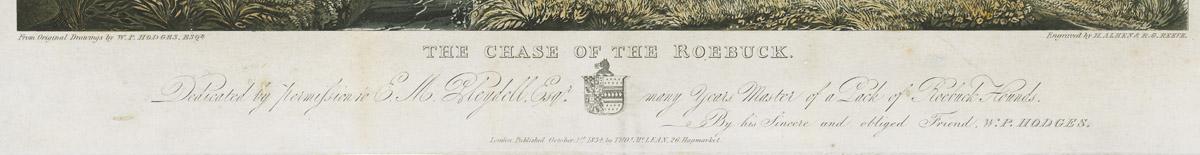 From Original Drawings by W. P. HODGES, ESQR.
Engraved by H. ALKEN & R. G. REEVE.
THE CHASE OF THE ROEBUCK.
Dedicated by Permission to E. M. Pleydell, Esqr. many Years Master of a Pack of Roebuck Hounds.
By his Sincere and obliged Friend, W. P. HODGES.
London, Published October 1st 1834, by THOS. McLEAN, 26 Haymarket.